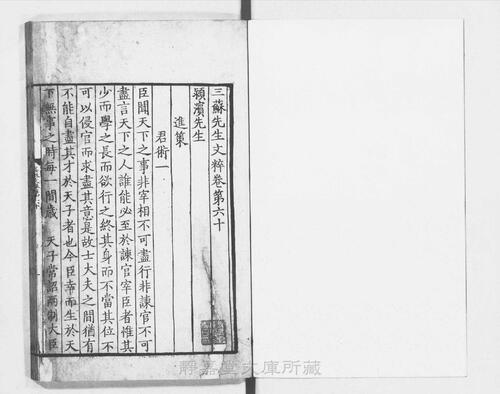 三蘇先生文粹卷第六十
潁濱先生
進策
君術一
臣聞天下之事非宰相不可盡行非諫官不可
盡言天下之人誰能必至於諫官宰臣者惟其
少而學之長而欲行之終其身而不當其位不
可以侵官而求盡其意是故士大夫之間猶有
不能自盡其才於天子者也今臣幸而生於天
下無事之時每一間歲 天子常詔兩制大臣
靜嘉堂文庫所藏